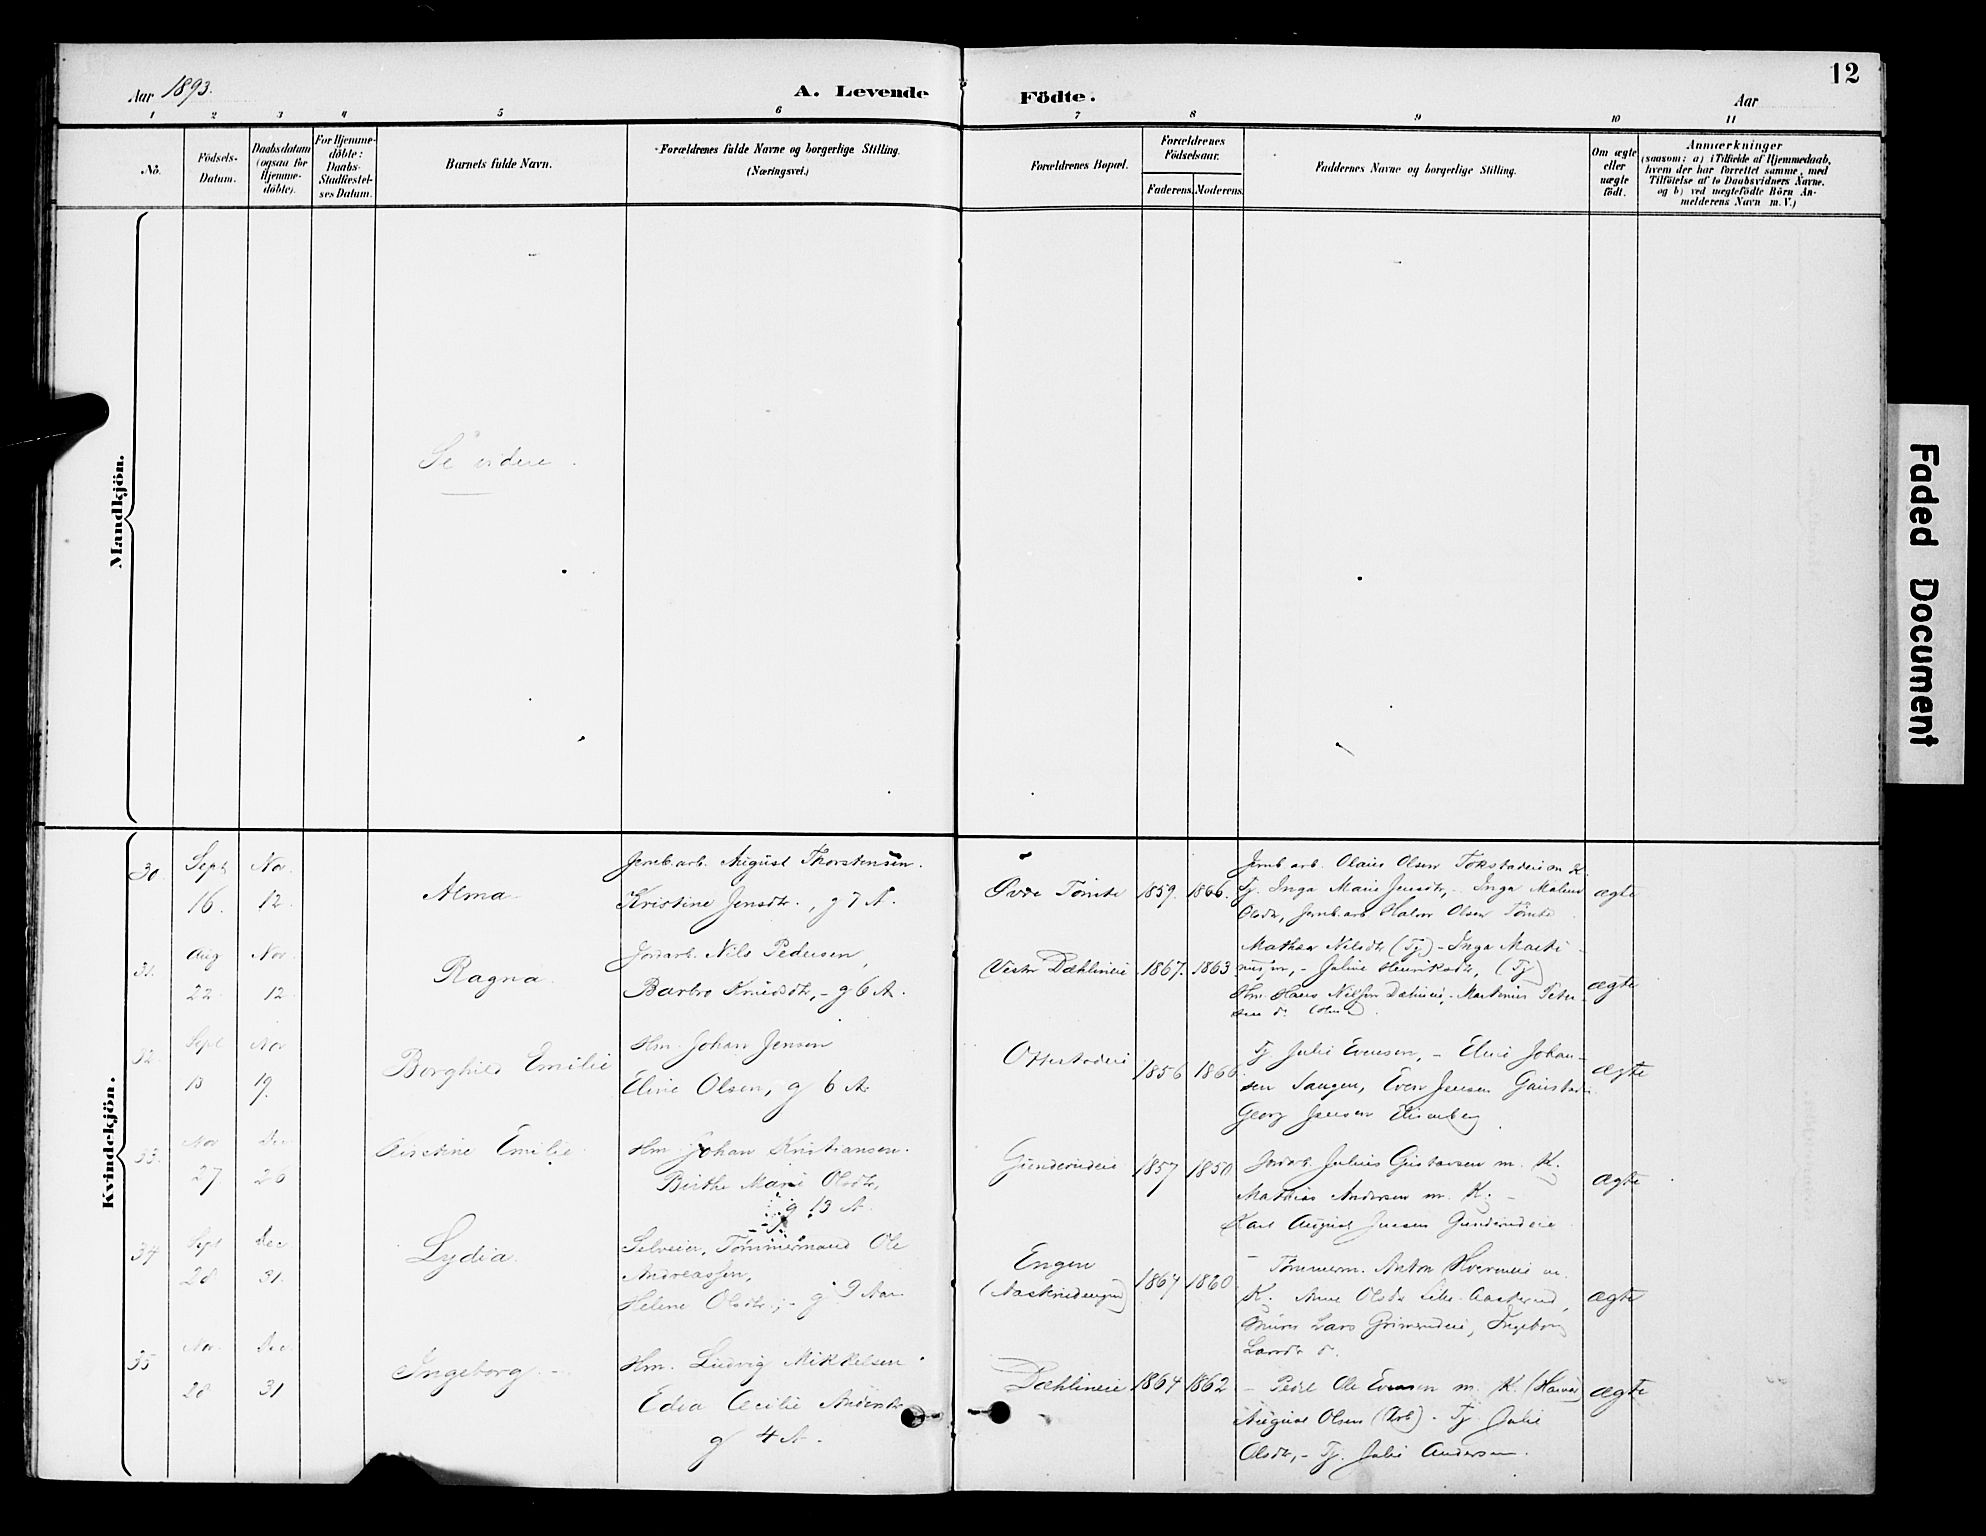 12
Aar 1893.
A. Levende Födte.
Aar
1 2 3 4 5 6 7 8 9 10 11
No.
Födsels-
Datum.
Daabsdatum
(ogsaa for
Hjemme-
döbte).
For Hjemme-
döbte:
Daabs-
Stadfæstel-
ses Datum.
Barnets fulde Navn.
Forældrenes fulde Navne og borgerlige Stilling.
(Næringsvei.)
Forældrenes Bopæl.
Forældrenes
Födselsaar.
Faderens. Moderens.
Faddernes Navne og borgerlige Stilling.
Om ægte
eller
uægte
födt.
Anmærkninger
(saasom: a) i Tilfælde af Hjemmedaab,
hvem der har forrettet samme, med
Tilföielse af to Daabsvidners Navne,
og b) ved uægtefödte Börn An-
melderens Navn m. V.)
Mandkjön.
Se videre.
Kvindekjön.
30.
Sept
16.
Nov
12.
Alma
Jernb.arb. August Thorstensen.
Kristine Jensdtr., g 7 A.
Øvre Tømte
1859. 1866.
Jernb.arb. Olaus Olsen m. K.
Tj. Inga Marie Jensdtr, - Inga
Olsdtr, Jernb.arb. Halvor Olsen Tømte
ægte
31.
Aug
22.
Nov.
12.
Ragna.
Jordarb. Nils Pedersen,
Barbro Knudsdtr, - g 6 A.
Vestre Dæhlineie
1867. 1863
Nilsdtr (Tj) - Inga Marti-
- Juline Henriksdtr, (Tj)
Hm. Hans Nilsen - Martinius Peter-
sen d.
ægte
32.
Sept
13
Nov
19.
Borghild Emilie
Hm. Johan Jensen
Eline Olsen, g 6 A.
Otterstadeie
1856 1866
Tj Julie Evensen, - Eline Johan-
sen Saugen, Even Jensen
Georg Jensen
ægte
33.
Nov
27
Dec
26
Kirstine Emilie.
Hm Johan Kristiansen.
Birthe Marie Olsdtr,
g 13 A.
Gunderudeie
1857 1850
Jordarb. Julius Gustavsen m. K.
Mathias Andersen m. K. -
Karl August Jensen Gunderudeie
ægte
34
Sept
28
Dec
31.
Lydia.
Selveier, Tømmermand Ole
Andreassen,
Helene Olsdtr, - g 9 Aar
Engen
1864 1860
- Tømmerm. Anton m.
K. Anne Olsdtr
Lars Ingeborg
Larsdtr d.
ægte
35
Nov.
28
Dec.
31
Ingeborg. -
Hm. Ludvig Mikkelsen
Edea Cecilie Andersdtr
g 4 A.
Dæhlineie
1864 1862
- Ole Evensen m. K.
August Olsen (Arb) - Tj. Julie
Olsdtr, - Tj. Julie Andersen.
ægte
Faded Document